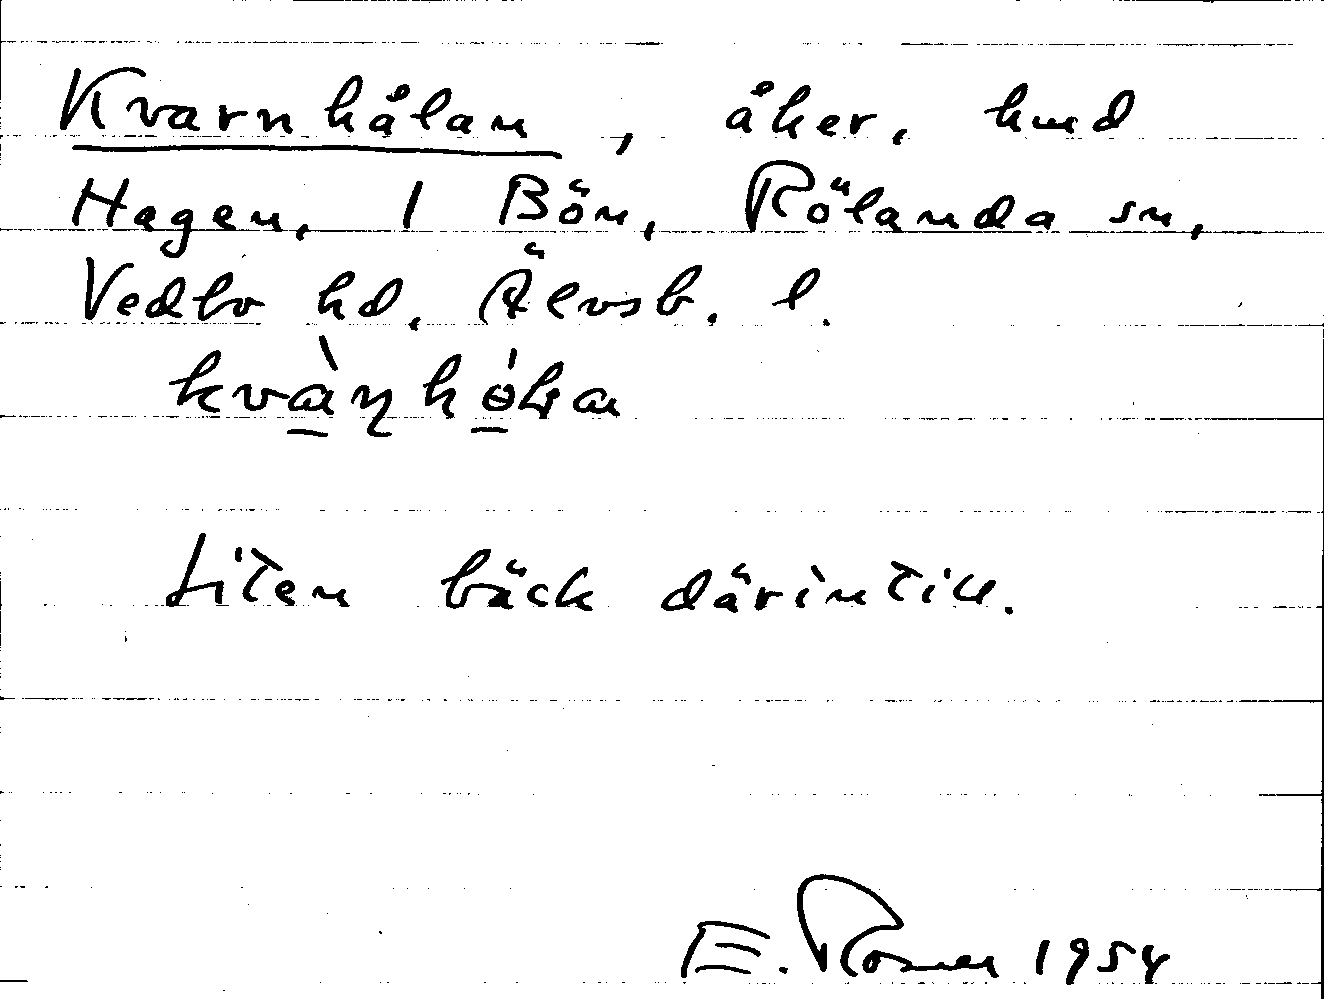 Kvarnhålan, åker, hmd
Hagen, 1 Bön, Rölanda sn,
Vedbo hd, Älvsb. l.
Liten bäck därintill.
E. Rosner 1954